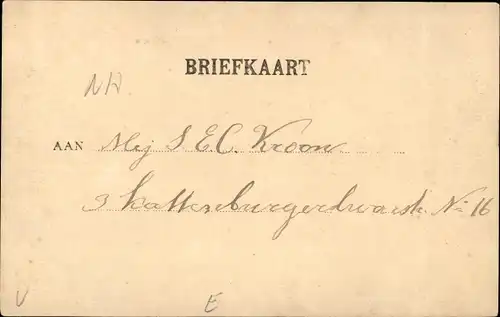 BRIEFKAART
NH
AAN Mej S. E. C. Kroon
3 Kattenburgerdwarsstr. No 16
V E